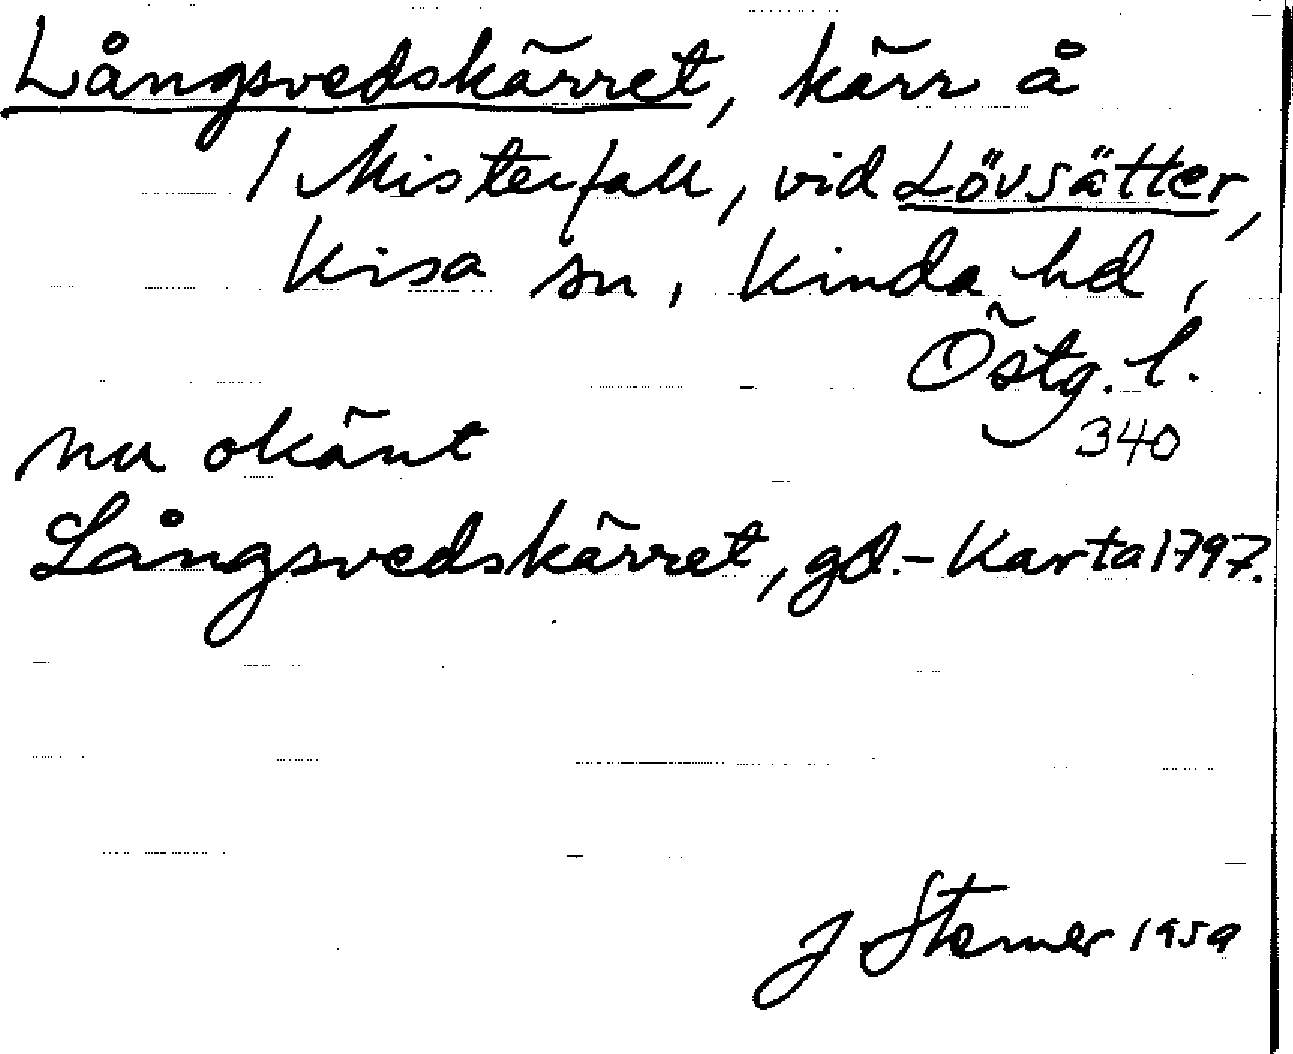 Långsvedskärret, kärr å
1 Misterfall, vid Lövsätter,
Kisa sn, Kinda hd,
Östg. l.
340
nu okänt
Långsvedskärret, gd.- Karta 1797.
J 1959